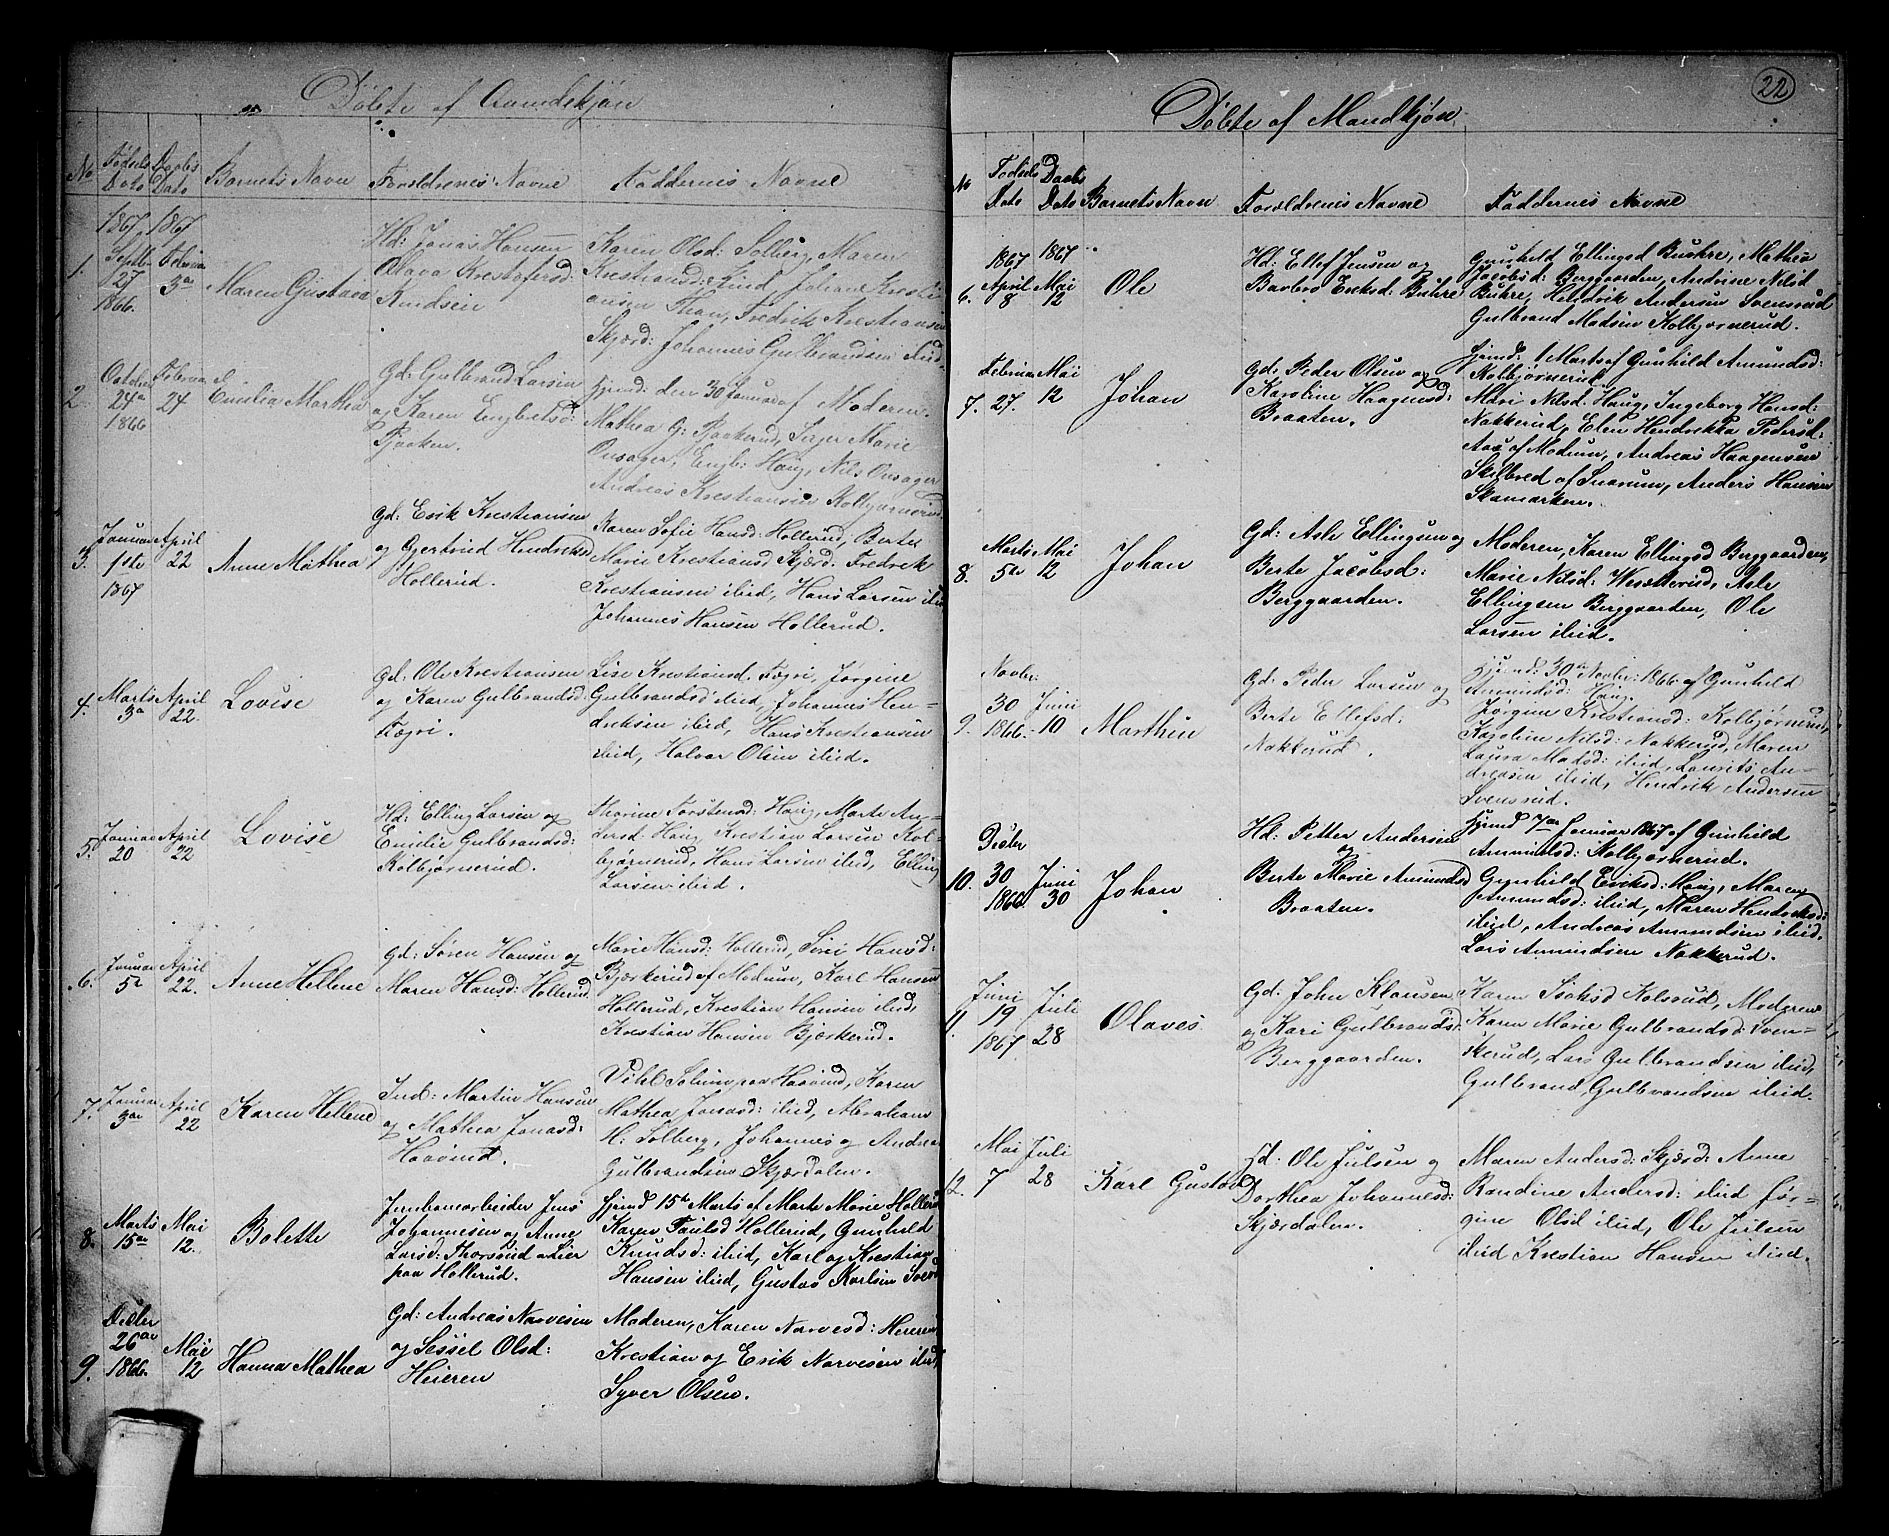 Døbte af Qvindekjøn
No
Fødsels Dato
Daabs Dato
Barnets Navn
Forældrenes Navne
Faddernes Navne
1867 1867
1. Septbr 27 1866.
Februar 3de
Maren Gustava
Hd: Jonas Hansen
Olava Krestofersd:
Knudsein
Karen Olsd: Solberg, Maren
Krestiansd: ibid, Johane Kresti-
ansen Thon, Fredrik Krestiansen
Skjærd: Johannes Gulbrandsen ibid.
2. October 24de 1866
Februar 24
Emilia Marthea
Gd: Gulbrand Larsen
og Karen Engbretsd:
Pjaaken.
Hjemd: den 30 Januar af Moderen.
Mathea G: Pjaakerud, Sirjer Marie
Onsager, Engb: Haug, Nils Onsager
Andreas Krestiansen Kolbjørnerud
3. Januar 1ste 1867
April 22
Anne Mathea
Gd: Erik Krestiansen
og Gjertrud Hendriksd:
Hollerud.
Karen Sofie Hansd: Hollerud, Berte
Marie Krestiansd Skjærd: Fredrik
Krestiansen ibid, Hans Larsen ibid
Johannes Hansen Hollerud.
4. Marts 3de
April 22.
Lovise
Gd: Ole Krestiansen
og Karen Gulbrandsd:
Fægri.
Lise Krestiansd. Fægri, Jørgine
Gulbrandsd ibid, Johannes Hen-
driksen ibid, Hans Krestiansen
ibid, Halvor Olsen ibid.
5. Januar 20
April 22
Lovise
Hd: Elling Larsen og
Emilie Gulbrandsd:
Kolbjørnerud.
Thorine Torstensd: Haug, Marte An-
dersd: Haug, Krestian Larsen Kol-
bjørnerud, Hans Larsen ibid, Elling
Larsen ibid.
6. Januar 5te
April 22.
Anne Hellene
Gd: Søren Hansen og
Maren Hansd: Hollerud
Marie Hansd: Hollerud, Siri Hansd:
Bjærkerud af Modum, Karl Hansen
Hollerud, Krestian Hansen ibid,
Krestian Hansen Bjærkerud.
7. Januar 3de
April 22
Karen Hellene
Ind: Martin Hansen
og Mathea Jonasd:
Haavind.
Vihl. Solum paa Haavind, Karen
Mathea Jonasd: ibid, Abraham
H: Solberg, Johannes og Andreas
Gulbrandsen Skjærdalen.
8. Marts 15de
Mai 12.
Bolette
Jernbanearbeider Jens
Johannesen og Anne
Larsd: Thorsrud a Lier
paa Hollerud.
Hjemd 15de Marts af Marte Marie Hollerud
Karen Paulsd Hollerud, Gunhild
Knudsd: ibid, Karl og Krestian
Hansen ibid, Gustav Karlsen
9. Decbr 26de 1866.
Mai 12
Hanna Mathea
Gd: Andreas Narvesen
og Sessel Olsd:
Heieren
Moderen, Karen Narvesd: Heieren,
Krestian og Erik Narvesen ibid,
Syver Olsen.
22
Døbte af Mandkjøn
No
Fødsels Dato
Daabs Dato
Barnets Navn
Forældrenes Navne
Faddernes Navne
1867 1867
6. April 8
Mai 12
Ole
Hd: Ellef Jensen og
Barbro Eriksd: Buhre
Gunhild Ellingsd Buhre, Mathea
Jacobsd: Berggaarden, Andrine Nilsd
Buhre, Hendrik Andersen Svensrud
Gulbrand Madsen Kolbjørnerud.
7. Februar 27.
Mai 12
Johan
Gd: Peder Olsen og
Karoline Haagensd:
Braaten.
Hjemd: 1 Marts af Gunhild Amundsd:
Kolbjørnerud.
Mari Nilsd. Haug, Ingeborg Hansd:
Nakkerud, Elen Hendrikka Pedersd:
Aas af Modum, Andreas Haagensen
Skilbred af Snarum, Anders Hansen
Skamarken.
8. Marts 5te
Mai 12
Johan
Gd: Asle Ellingsen og
Berte Jacobsd:
Berggaarden.
Moderen, Karen Ellingsd Berggaarden,
Marie Nilsd: Wesætterud, Asle
Ellingsen Berggaarden, Ole
Larsen ibid.
9. Novbr 30 1866.
Juni 10
Marthin
Gd: Peder Larsen og
Berte Ellefsd:
Nakkerud.
Hjemd: 30de Novbr: 1866 af Gunhild
Amundsd: Haug.
Jørgine Krestiansd: Kolbjørnerud,
Karoline Nilsd: Nakkerud, Maren
Laura Madsd: ibid, Laurits An-
dreasen ibid, Hendrik Andersen
Svensrud.
10. Decbr 30 1866
Juni 30
Johan
Hd: Petter Andersen
og
Berte Marie Amundsd
Braaten.
Hjemd 7de Januar 1867 af Gunhild
Amundsd: Kolbjørnerud.
Gunhild Eriksd: Haug, Maren
Amundsd: ibid, Maren Hendriksd:
ibid, Andreas Amundsen ibid.
Lars Amundsen Nakkerud.
11. Juni 19 1867
Juli 28
Olaves
Gd: John Klausen
og Kari Gulbrandsd
Berggaarden.
Karen Isaksd Kolsrud, Moderen
Karen Marie Gulbrandsd: Sven-
skerud, Lars Gulbrandsen ibid,
Gulbrand Gulbrandsen ibid.
12. Mai 7
Juli 28
Karl Gustav
Hd: Ole Julsen og
Dorthea Johannesd:
Skjærdalen.
Maren Andersd: Skjærd: Anne
Randine Andersd: ibid Jør-
gine Olsd ibid, Ole Julsen
ibid Krestian Hansen ibid.